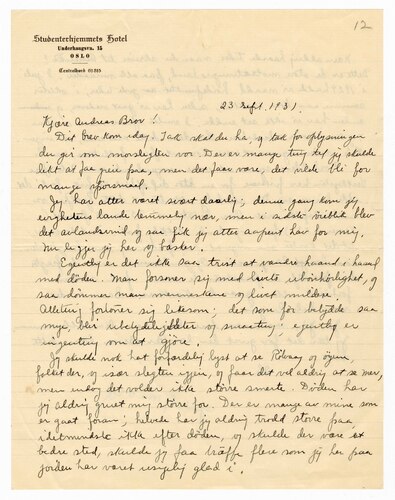 12
Studenterhjemmets Hotel
Underhaugsvn. 15
OSLO
Centralbord 61315
23 sept. 1931.
Kjære Andreas Brov!
Dit brev kom idag. Tak skal du ha, og tak for oplysningen
du gir om morslegten vor. Der er mange ting jeg skulde
likt at faa greie paa, men det faar være, det vilde bli for
mange spørsmaal.
Jeg har atter været svært daarlig; denne gang kom jeg
evighetens lande temmelig nær, men i sidste øieblik blev
det avlandsvind og saa fik jeg atter aapent hav for mig.
Nu ligger jeg her og baster.
Egentlig er det ikke saa trist at vandre haand i haand
med døden. Man forsoner sig med livets ubønhørlighet, og
saa dømmer man menneskene og livet mildere.
Alleting fortoner sig likesom; det som før betydde saa
mye, blir ubetydeligheter og smaating; egentlig er
ingenting om at gjøre.
Jeg skulde nok hat forfærdelig lyst at se Rølvaag og øyene,
folket der, og især slegten igjen, og faar det vel aldrig at se mer,
men endog det volder ikke større smerte. Døden har
jeg aldrig gruet mig større for. Der er mange av mine som
er gaat foran; helvede har jeg aldrig trodd større paa,
ikke efter døden, og skulde der være et
bedre sted, skulde jeg faa træffe flere som jeg her paa
jorden har været usigelig glad i.